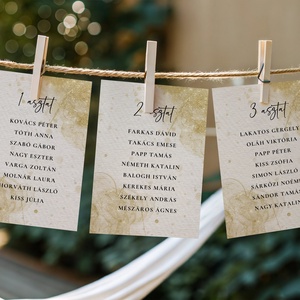 1 asztal
KOVÁCS PÉTER
TÓTH ANNA
SZABÓ GÁBOR
NAGY ESZTER
VARGA ZOLTÁN
MOLNÁR LAURA
HORVÁTH LÁSZLÓ
KISS JÚLIA
2 asztal
FARKAS DÁVID
TAKÁCS EMESE
PAPP TAMÁS
NÉMETH KATALIN
BALOGH ISTVÁN
KEREKES MÁRIA
SZÉKELY ANDRÁS
MÉSZÁROS ÁGNES
3 asztal
LAKATOS GERGELY
OLÁH VIKTÓRIA
PAPP PÉTER
KISS ZSÓFIA
SIMON LÁSZLÓ
SÁRKÖZI NOÉMI
SÁNDOR TAMÁS
NAGY KATALIN